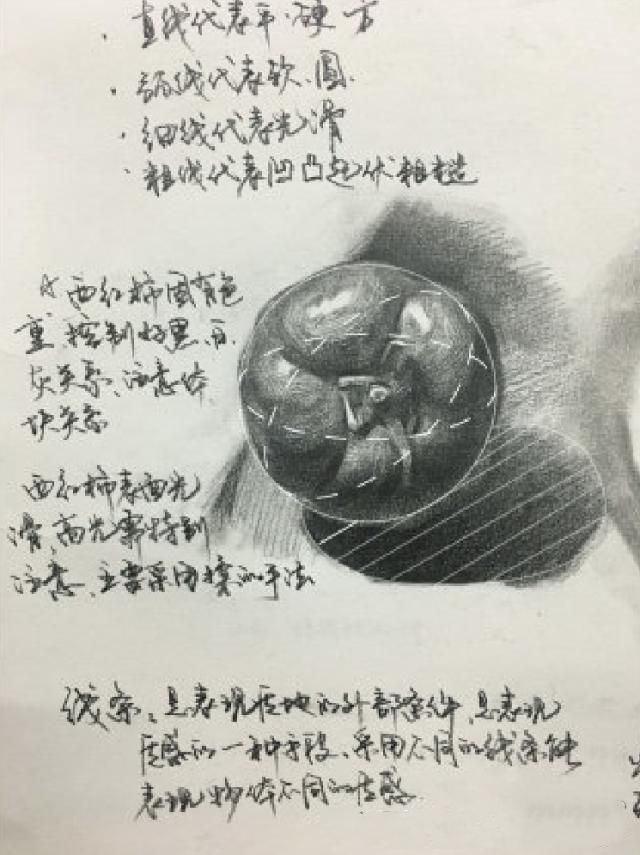 · 直线代表平、硬、方
· 弧线代表软、圆.
· 细线代表光滑
· 粗线代表凹凸起伏粗糙
西红柿固有色
重,控制好黑、白、
灰关系、注意体
块关系
西红柿表面光
滑,高光需特别
注意、主要采用揉的手法
线条、是表现质地的外部条件、是表现
质感的一种手段、采用不同的线条能
表现物体不同的质感.